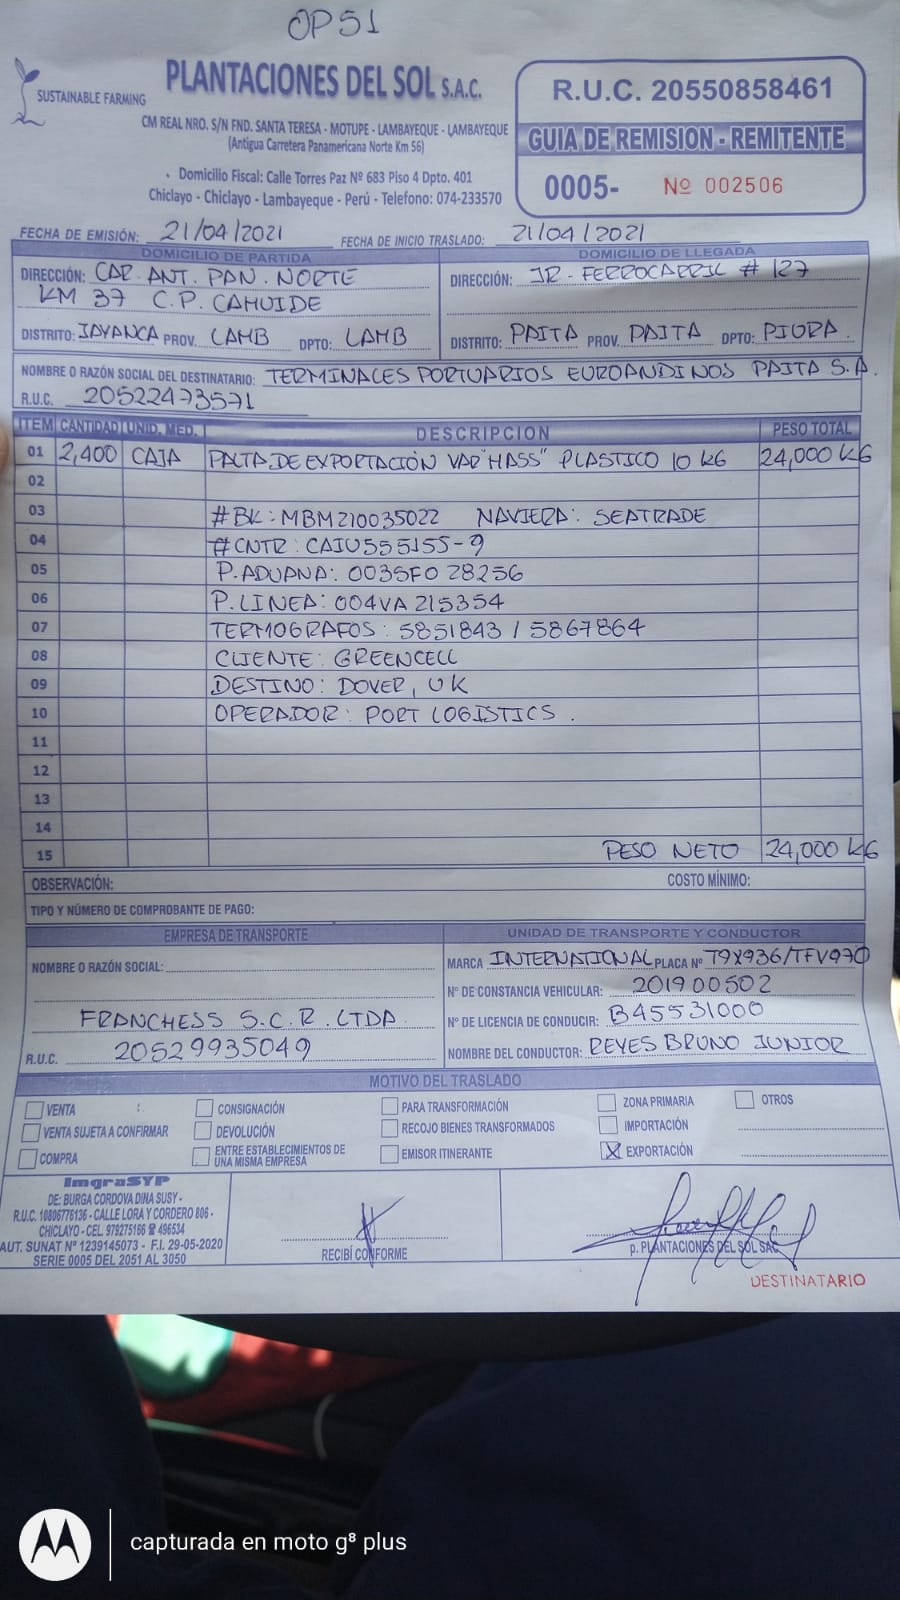 OP51
SUSTAINABLE FARMING
PLANTACIONES DEL SOL S.A.C.
CM REAL NRO. S/N FND. SANTA TERESA - MOTUPE - LAMBAYEQUE - LAMBAYEQUE
(Antigua Carretera Panamericana Norte Km 56)
Domicilio Fiscal: Calle Torres Paz Nº 683 Piso 4 Dpto. 401
Chiclayo - Chiclayo - Lambayeque - Perú - Telefono: 074-233570
R.U.C. 20550858461
GUIA DE REMISION - REMITENTE
0005- Nº 002506
FECHA DE EMISIÓN: 21/04/2021 FECHA DE INICIO TRASLADO: 21/04/2021
DOMICILIO DE PARTIDA
DIRECCIÓN: CAR. ANT. PAN. NORTE
KM 37 C.P. CAHUIDE
DISTRITO: JAYANCA PROV. LAMB DPTO: LAMB
DOMICILIO DE LLEGADA
DIRECCIÓN: JR. FERROCARRIL # 127
DISTRITO: PAITA PROV. PAITA DPTO: PIURA.
NOMBRE O RAZÓN SOCIAL DEL DESTINATARIO: TERMINALES PORTUARIOS EUROANDINOS PAITA S.A.
R.U.C. 20522473571
ITEM CANTIDAD UNID. MED. DESCRIPCION PESO TOTAL
01 2,400 CAJA PALTA DE EXPORTACIÓN VAR "HASS" PLASTICO 10 KG 24,000 KG
02
03 #BK: MBM210035022 NAVIERA: SEATRADE
04 #CNTR: CAIU555155-9
05 P.ADUANA: 0035FO28256
06 P.LINEA: 004VA215354
07 TERMOGRAFOS: 5851843 / 5867864
08 CLIENTE: GREENCELL
09 DESTINO: DOVER, UK
10 OPERADOR: PORT LOGISTICS.
11
12
13
14
15 PESO NETO 24,000 KG
OBSERVACIÓN: COSTO MÍNIMO:
TIPO Y NÚMERO DE COMPROBANTE DE PAGO:
EMPRESA DE TRANSPORTE
NOMBRE O RAZÓN SOCIAL:
FRANCHESS S.C.R. LTDA.
R.U.C. 20529935049
UNIDAD DE TRANSPORTE Y CONDUCTOR
MARCA INTERNATIONAL PLACA Nº T9X936/TFV970
Nº DE CONSTANCIA VEHICULAR: 201900502
Nº DE LICENCIA DE CONDUCIR: B45531000
NOMBRE DEL CONDUCTOR: REYES BRUNO JUNIOR
MOTIVO DEL TRASLADO
VENTA CONSIGNACIÓN PARA TRANSFORMACIÓN ZONA PRIMARIA OTROS
VENTA SUJETA A CONFIRMAR DEVOLUCIÓN RECOJO BIENES TRANSFORMADOS IMPORTACIÓN
COMPRA ENTRE ESTABLECIMIENTOS DE EMISOR ITINERANTE X EXPORTACIÓN
UNA MISMA EMPRESA
ImgraSYP
DE: BURGA CORDOVA DINA SUSY -
R.U.C. 10806776136 - CALLE LORA Y CORDERO 806 -
CHICLAYO - CEL. 979275166 ☎ 496534
AUT. SUNAT Nº 1239145073 - F.I. 29-05-2020
SERIE 0005 DEL 2051 AL 3050
RECIBÍ CONFORME
p. PLANTACIONES DEL SOL SAC
DESTINATARIO
capturada en moto g⁸ plus